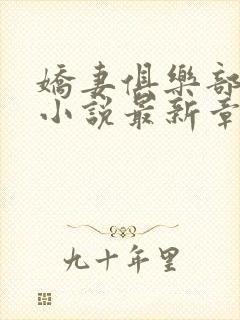 嬌妻俱樂部
小說最新章
九十年里